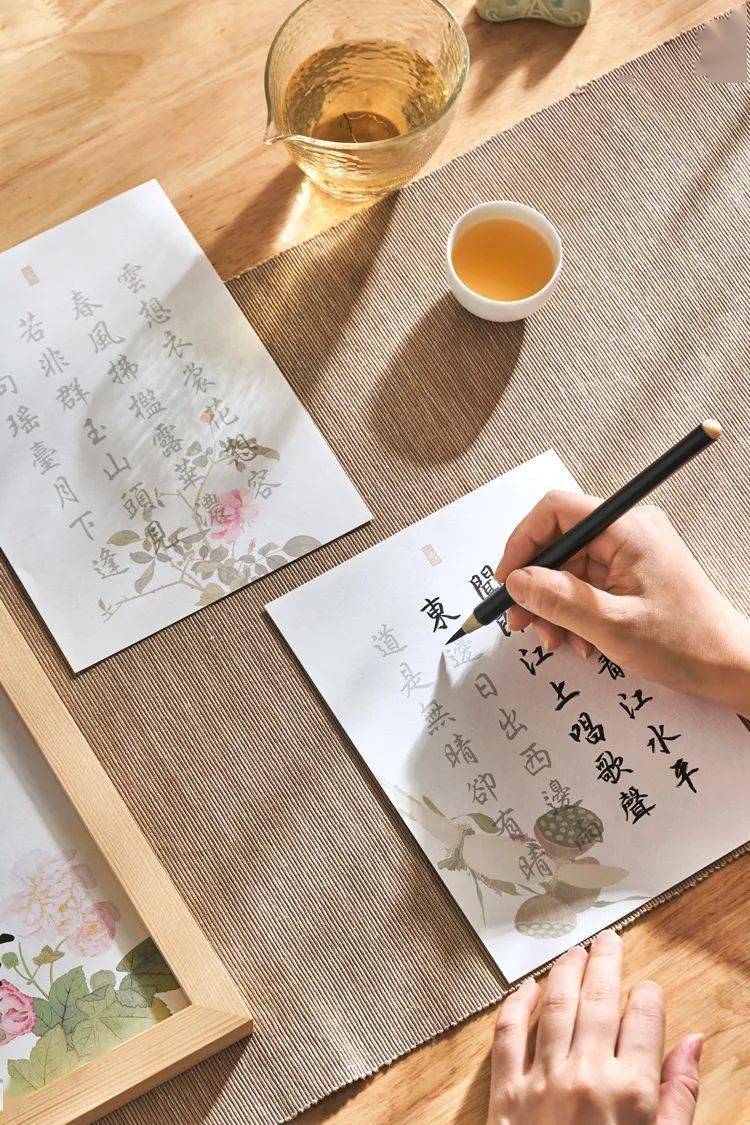 雲想衣裳花想容
春風拂檻露華濃
若非群玉山頭見
向瑤臺月下逢
青江水平
聞郎江上唱歌聲
東邊日出西邊雨
道是無晴卻有晴